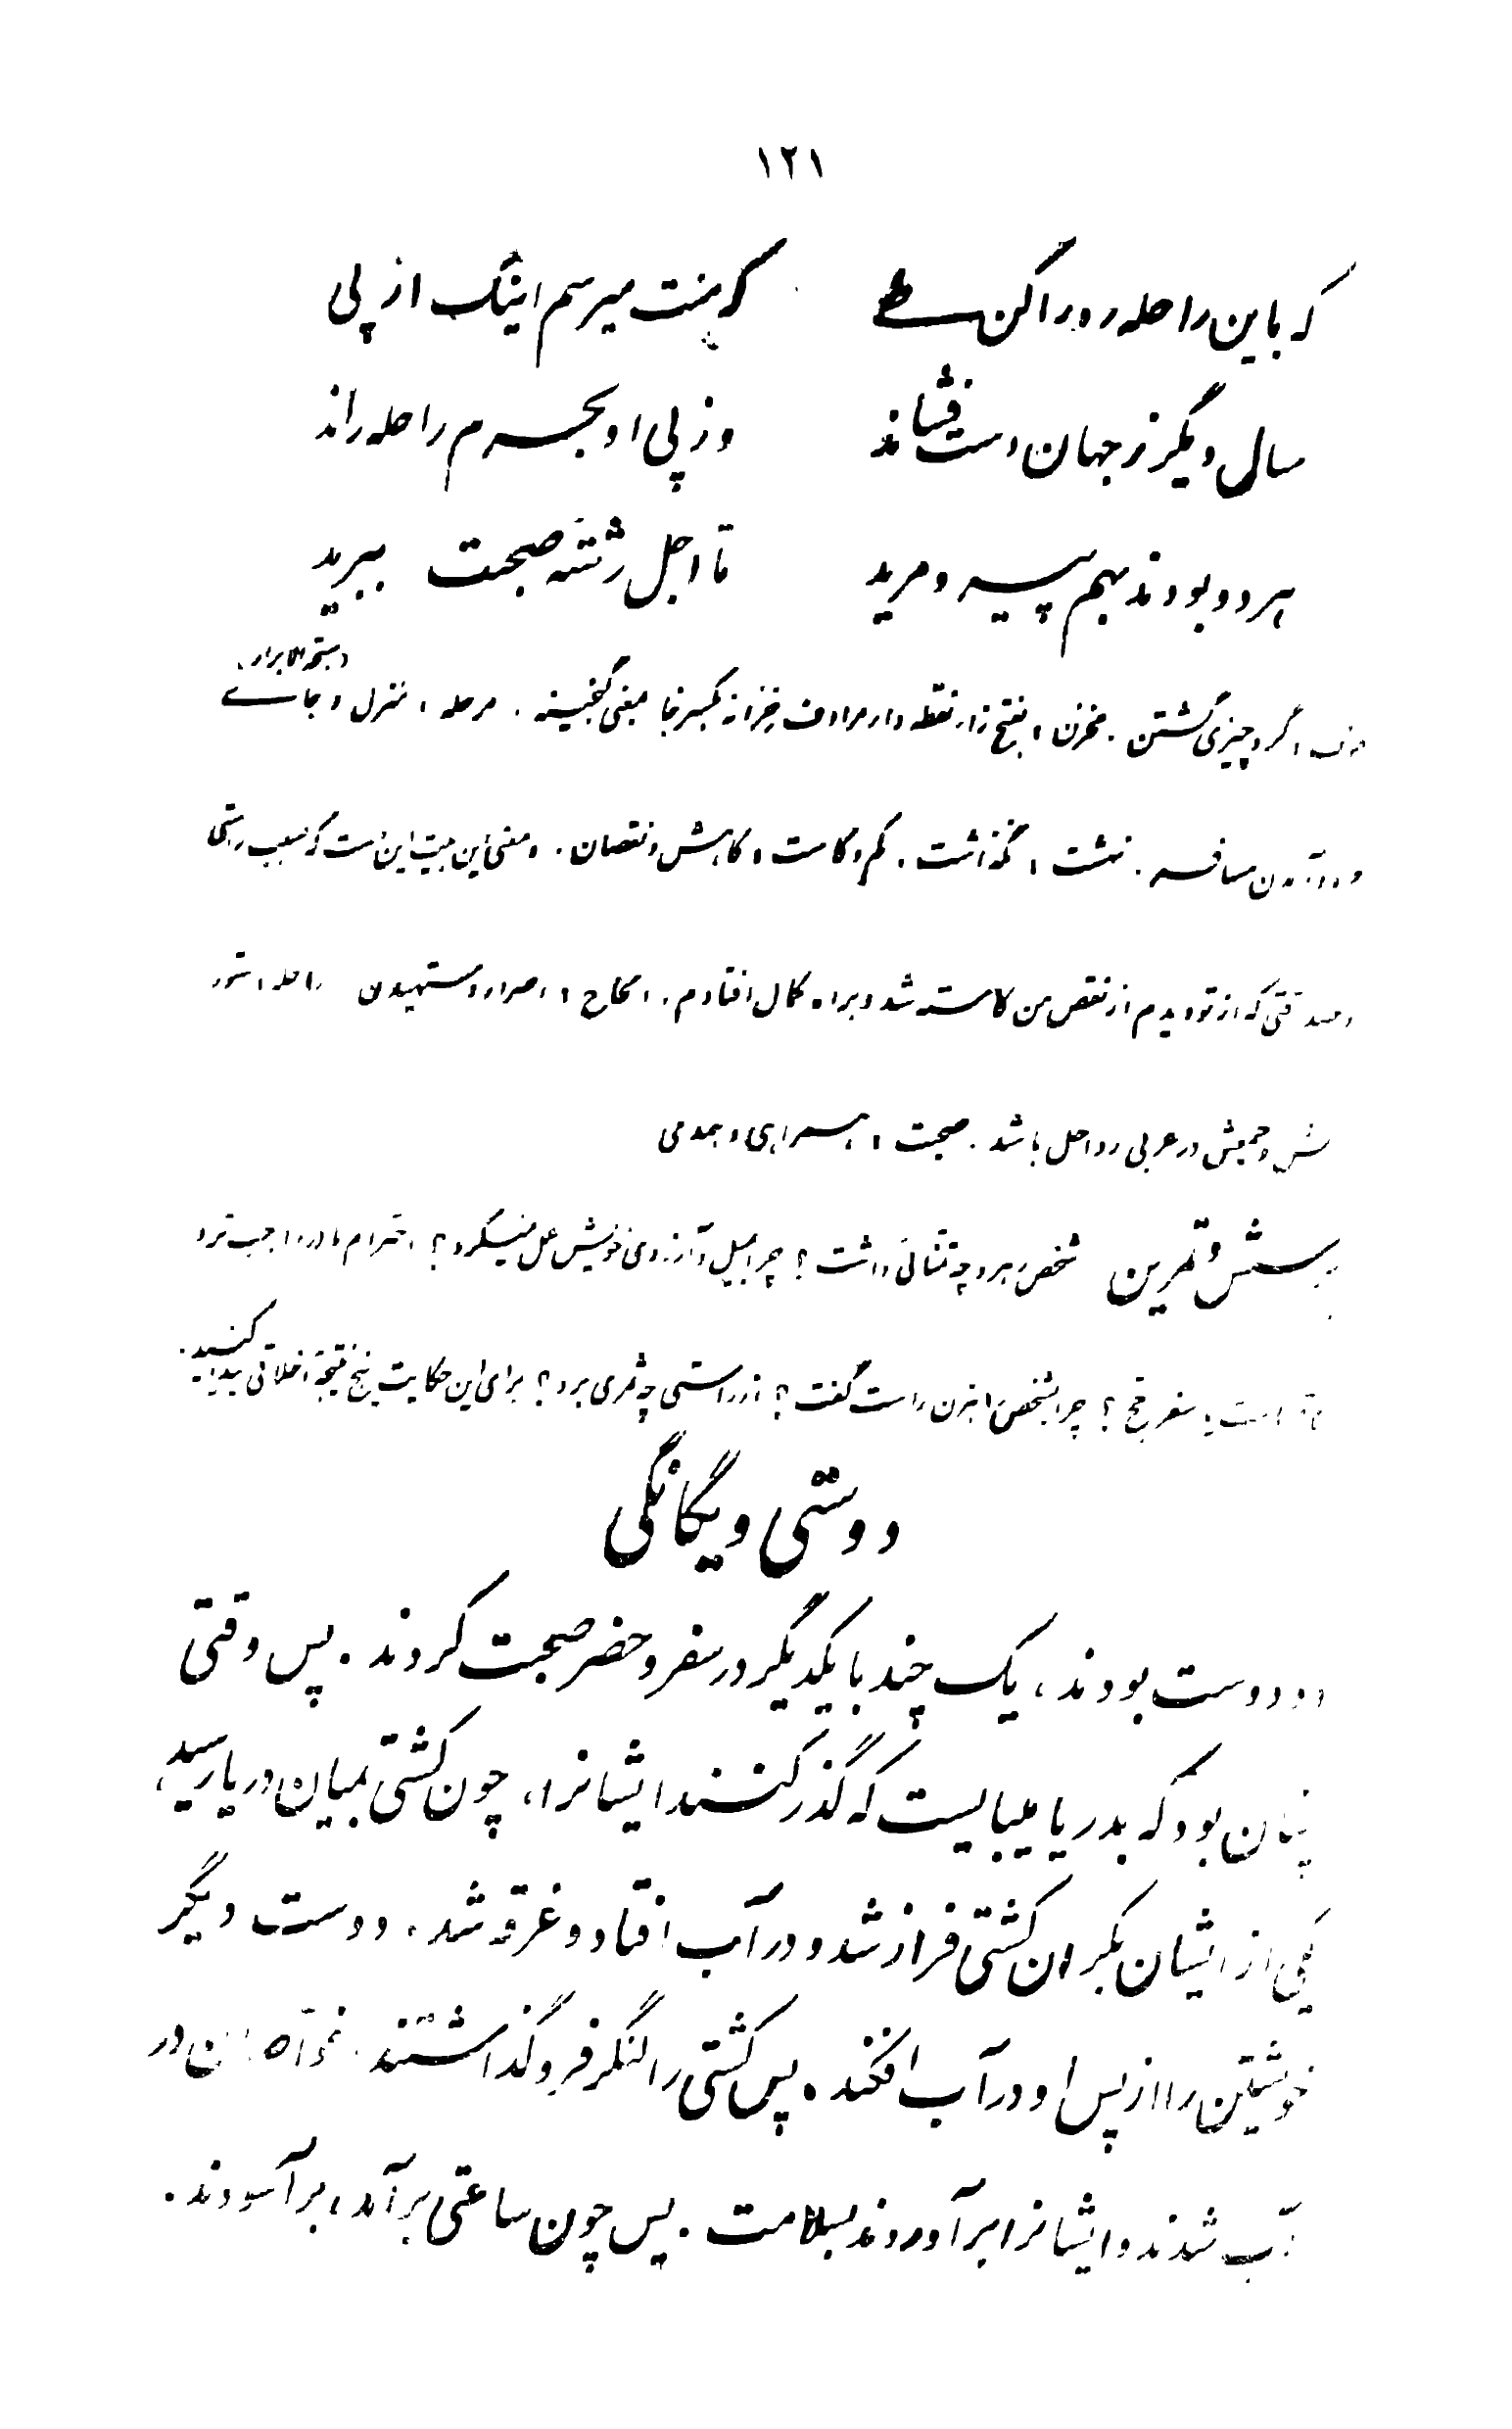 ۱۲۱
که باین راحله رو راکن طی	که منت میرسم اینک از پی
سال دیگر ز جهان دست فشاند	وز پی او بحرم راحله راند
هر دو بودند بهم پیر و مرید	تا اجل رشته صحبت ببرید
(سبحةالابرار)
گرد چیزی گشتن. مخزن، بفتح زاء نقطه دار مرادف خزانه بکسر خا بمعنی گنجینه. مرحله، منزل و جای
فرود آمدن مسافر. نهشت، نگذاشت. کم و کاست، کاهش و نقصان. و معنی این بیت این است که بسبب راستی
و صداقتی که از تو دیدم از نقص من کاسته شد و براه کمال افتادم. الحاح، اصرار و ستهیدن. راحله، ستور
و جمعش در عربی رواحل باشد. صحبت، همراهی و همدمی
پرسش و تمرین شخص رهرو چه تمنائی داشت؟ چرا بمیل و آرزوی خویش عمل نمیکرد؟ احترام مادر واجب‌تر
است یا سفر حج؟ چرا شخص راهزن راست گفت؟ از راستی چه ثمری برد؟ برای این حکایت پنج نتیجه اخلاقی پیدا کنید.
دوستی و یگانگی
دو دوست بودند، یک چند با یکدیگر در سفر و حضر صحبت کردند. پس وقتی
چنان بود که بدریا میبایست که گذر کنند ایشانرا، چون کشتی بمیان دریا رسید،
یکی از ایشان بکران کشتی فراز شد و در آب افتاد و غرقه شد، دوست دیگر
خویشتن را از پس او در آب افکند. پس کشتی را لنگر فرو گذاشتند. غواصان در
آب شدند و ایشانرا برآوردند بسلامت. پس چون ساعتی برآمد، برآسودند.